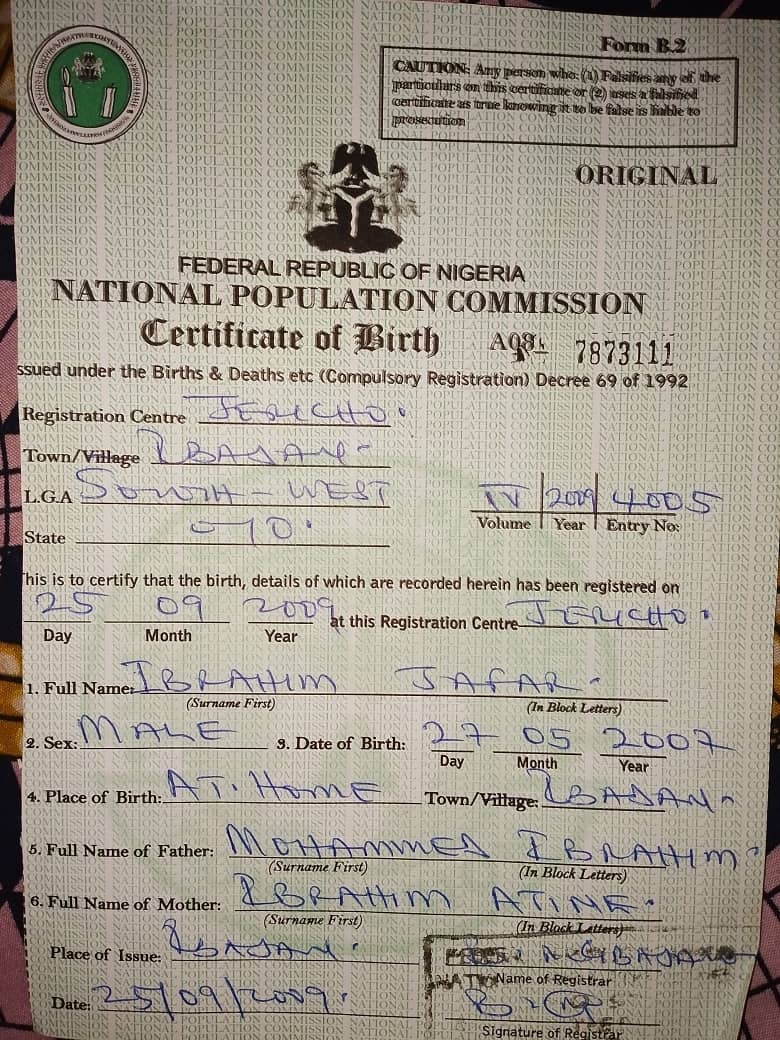 Form B.2
CAUTION: Any person who: (1) Falsifies any of the
particulars on this certificate or (2) uses a falsified
certificate as true knowing it to be false is liable to
prosecution
ORIGINAL
FEDERAL REPUBLIC OF NIGERIA
NATIONAL POPULATION COMMISSION
Certificate of Birth 7873111
ssued under the Births & Deaths etc (Compulsory Registration) Decree 69 of 1992
Registration Centre JERICHO.
Town/Village IBADAN
L.G.A SOUTH-WEST
IV 2009 4005
Volume Year Entry No:
State OYO.
his is to certify that the birth, details of which are recorded herein has been registered on
25 09 2009 at this Registration Centre JERICHO.
Day Month Year
1. Full Name: IBRAHIM JAFAR
(Surname First) (In Block Letters)
2. Sex: MALE 3. Date of Birth: 27 05 2007
Day Month Year
4. Place of Birth: AT. HOME Town/Village: IBADAN
5. Full Name of Father: MOHAMMED IBRAHIM
(Surname First) (In Block Letters)
6. Full Name of Mother: IBRAHIM ATINE.
(Surname First) (In Block Letters)
Place of Issue: IBADAN.
Name of Registrar
Date: 25/09/2009.
Signature of Registrar